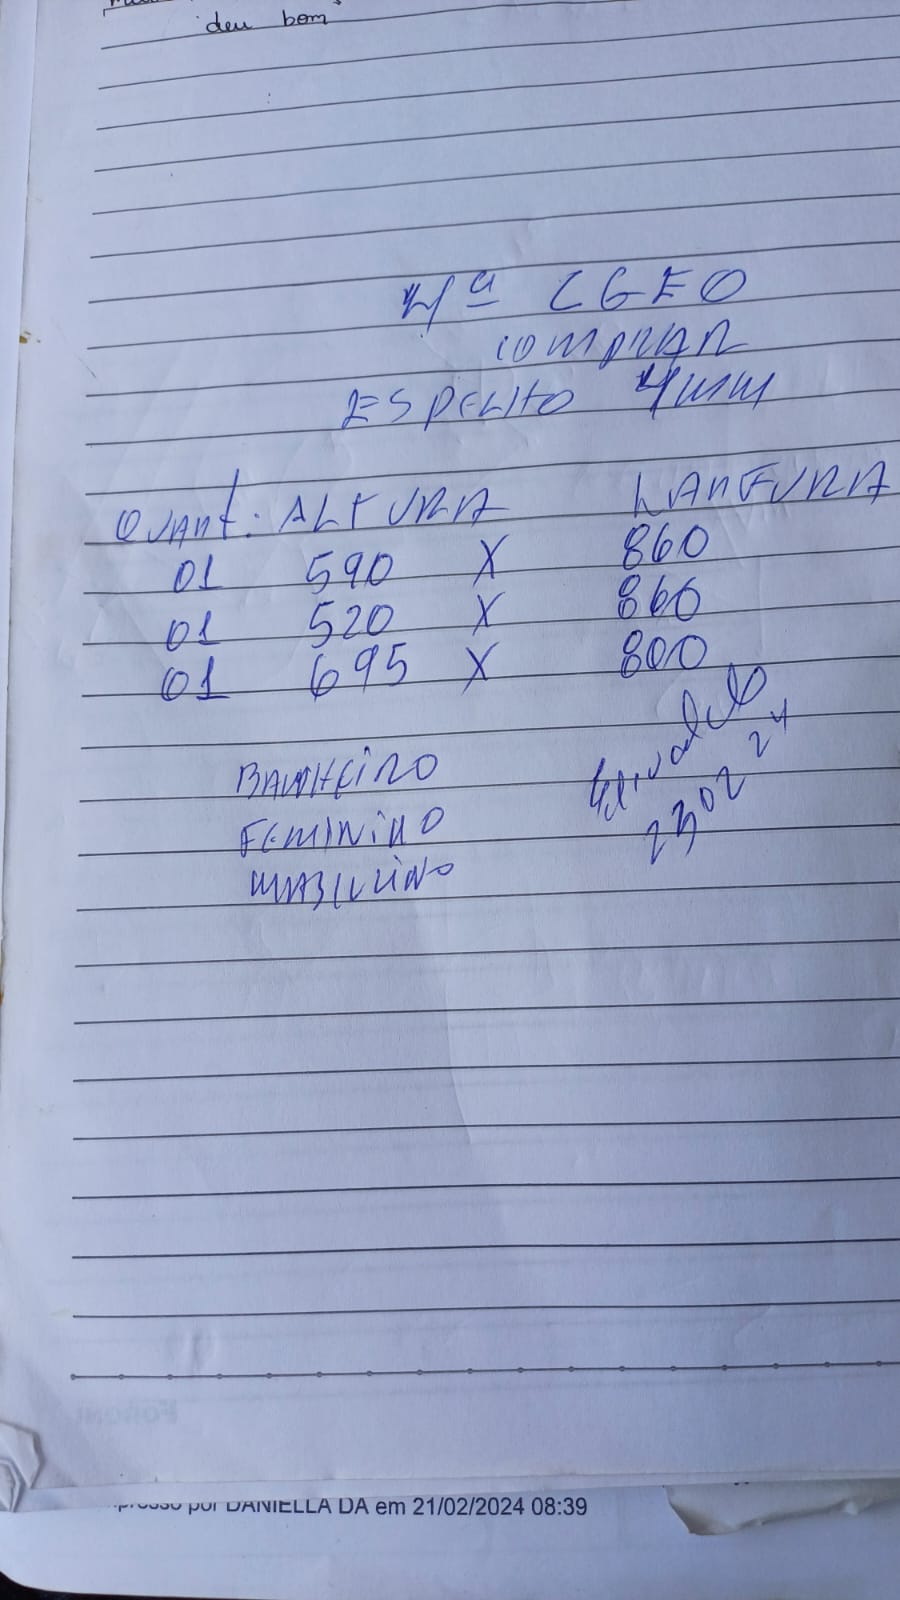 deu bom
4ª CGEO
COMPRAR
ESPELHO 4mm
QUANT: ALTURA LARGURA
01 590 X 860
01 520 X 860
01 695 X 800
BANHEIRO
FEMININO
MASCULINO
23 02 24
FORONI
por DANIELLA DA em 21/02/2024 08:39